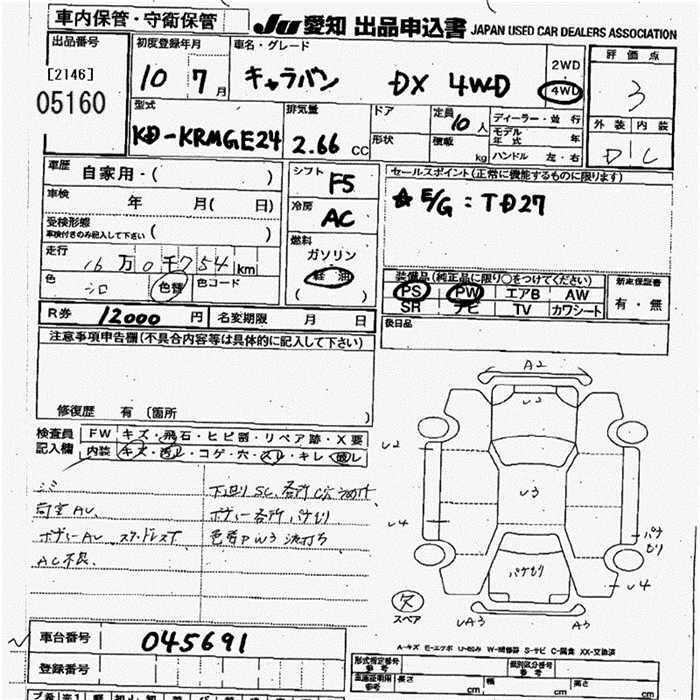 車内保管・守衛保管
JU 愛知 出品申込書 JAPAN USED CAR DEALERS ASSOCIATION
出品番号
[2146]
05160
初度登録年月
10 7月
車名・グレード
キャラバン DX 4WD
2WD
4WD
評価点
3
外装 内装
D C
型式
KD-KRMGE24
排気量
2.66 CC
ドア
形状
定員
10人
積載
kg
ディーラー・並行
モデル年式 年
ハンドル 左・右
車歴
自家用・( )
車検
年 月( 日)
受検形態
車検付きのみ記入して下さい ( )
走行
16万0千754km
色
シロ
色替
色コード
シフト
F5
冷房
AC
燃料
ガソリン
軽油
( )
セールスポイント(正常に機能するものに限ります)
☆ E/G : TD27
装備品(純正品に限り○をつけてください)
PS PW エアB AW
SR ナビ TV カワシート
新車保証書
有・無
後日品
R券 12000円
名変期限 月 日
注意事項申告欄(不具合内容等は具体的に記入して下さい)
修復歴 有 〔箇所 〕
検査員記入欄
FW キズ・飛石・ヒビ割・リペア跡・X要
内装 キズ・汚レ・コゲ・穴・スレ・キレ・破レ
シミ
AC不良
下回りSC
ボデー各所
A2
U2
U2
U3
U4
U4
パテもり
パテもり
UA3
A3
欠
スペア
A-キズ E-エクボ U-凹み W-補修跡 S-サビ C-腐食 XX-交換済
車台番号
045691
登録番号
型式指定番号
参考
類別区分番号
参考
長さ cm
幅 cm
高さ cm